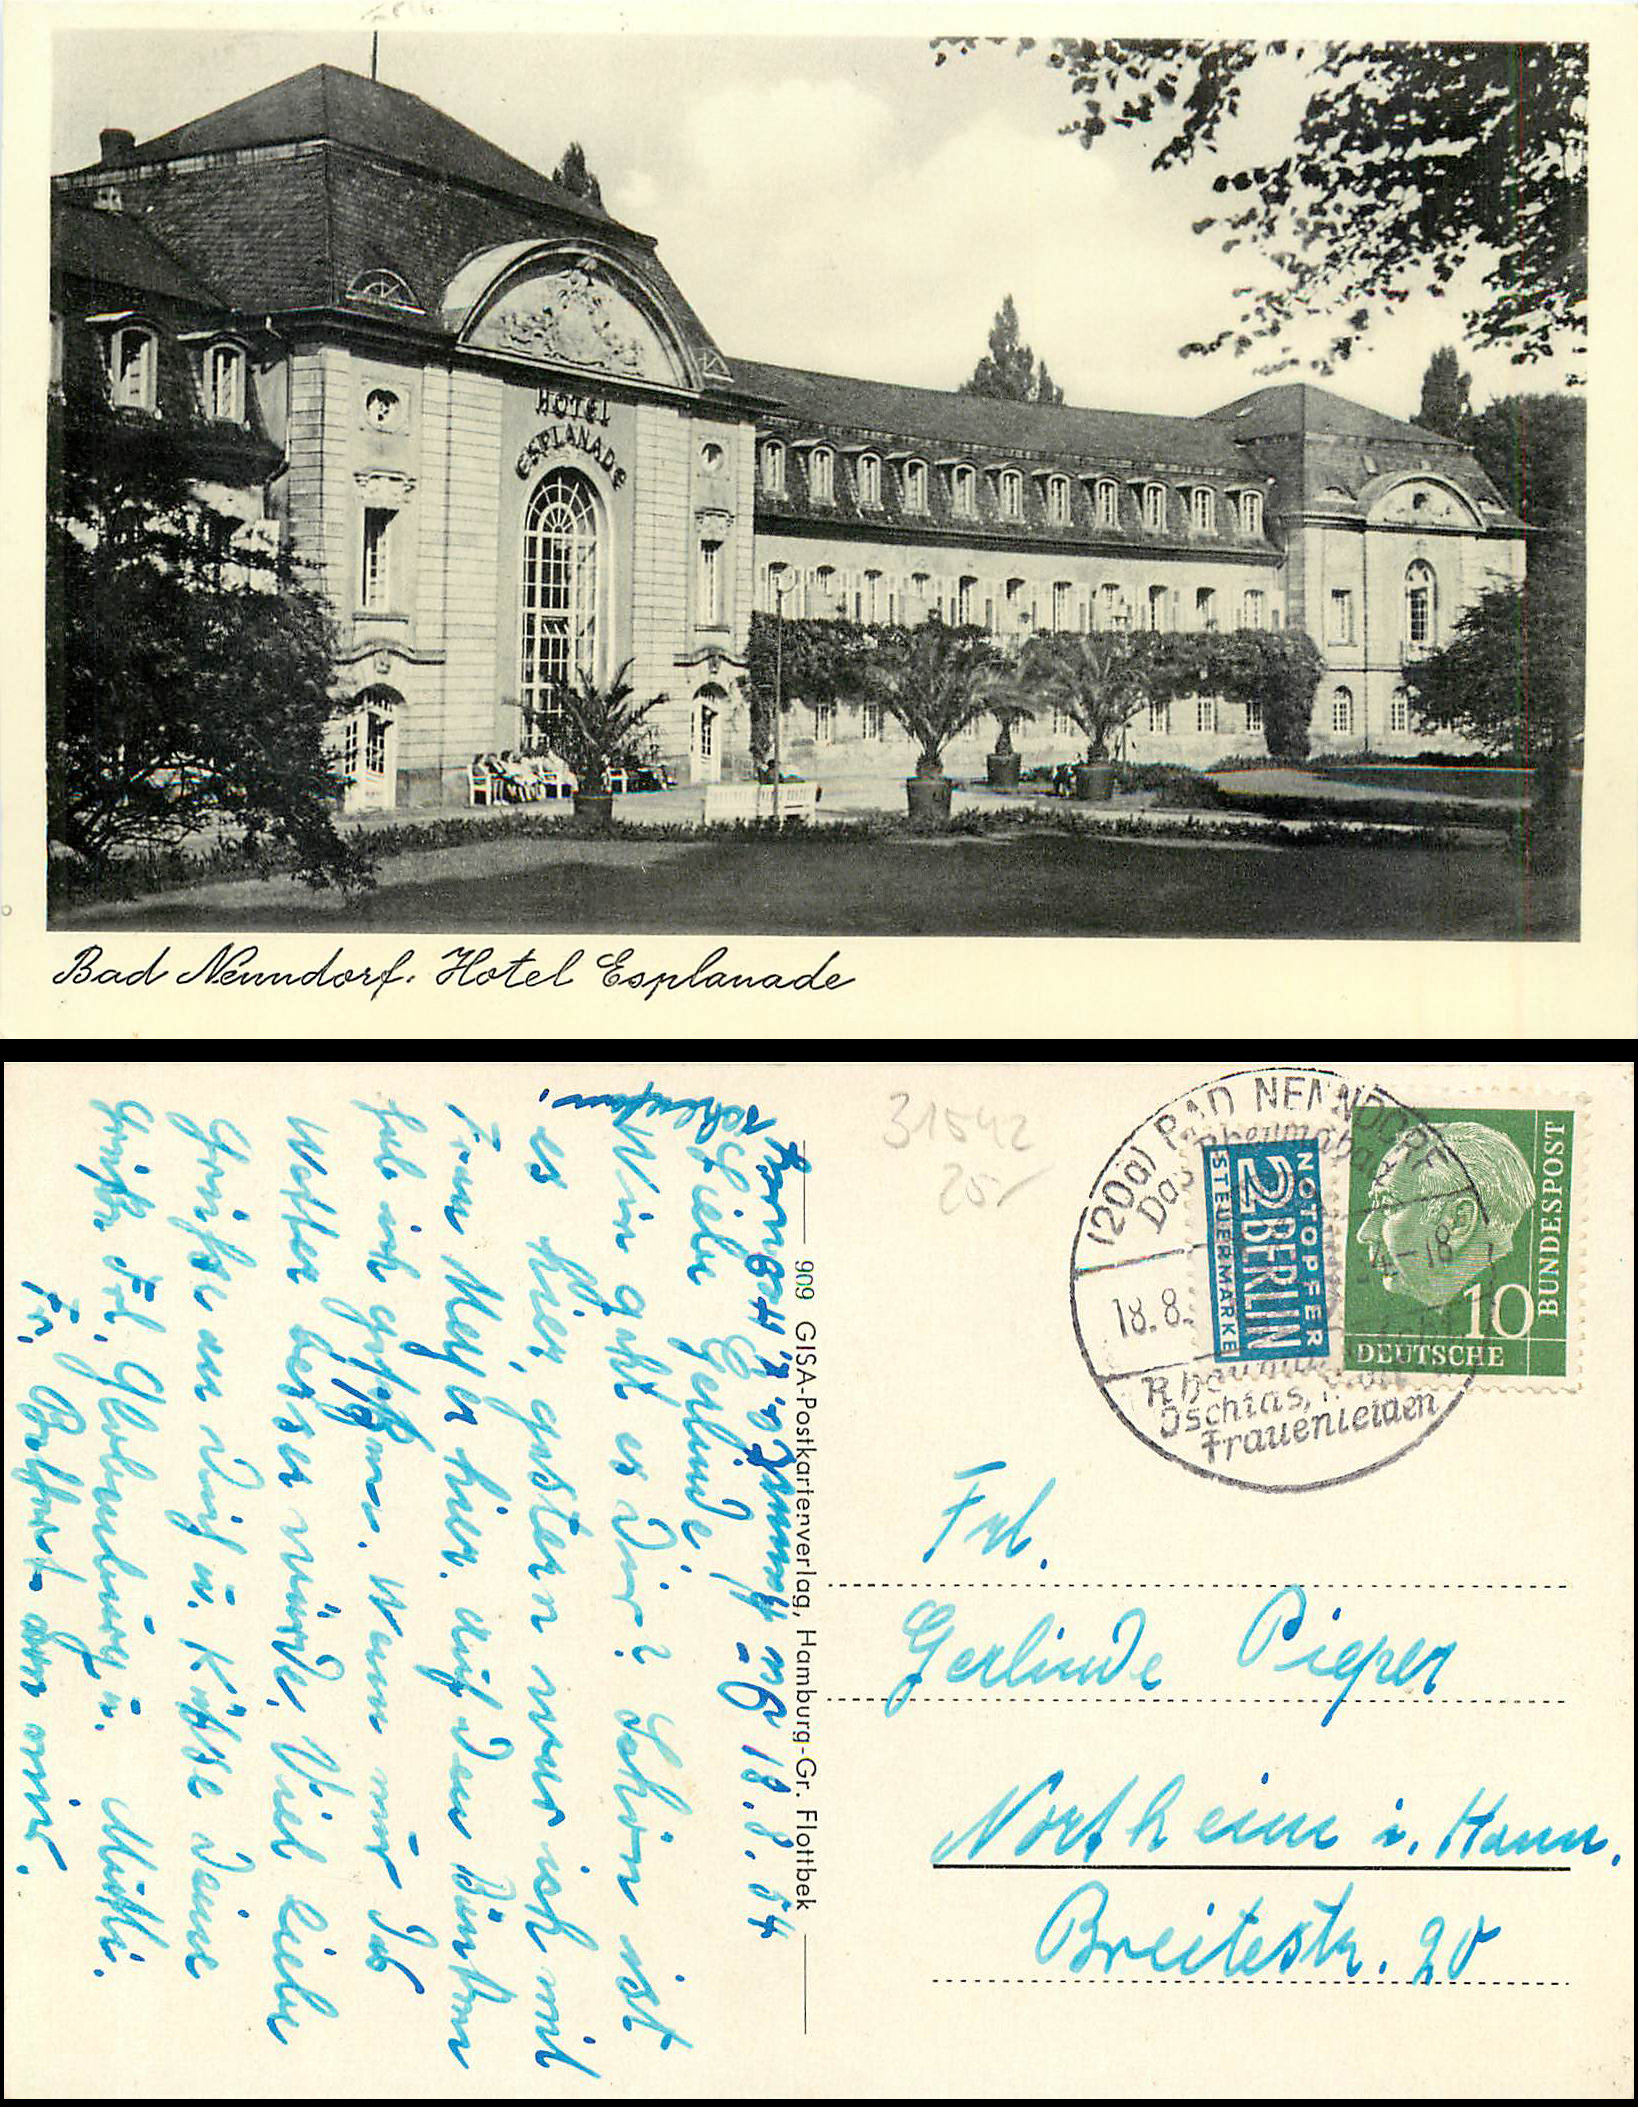 HOTEL
ESPLANADE
Bad Nenndorf. Hotel Esplanade
31542
20,-
(20a) BAD NENNDORF
Das
18.8. 54-18
Rheuma
Ischias,
Frauenleiden
NOTOPFER
2 BERLIN
STEUERMARKE
10
DEUTSCHE
BUNDESPOST
909 GISA-Postkartenverlag, Hamburg-Gr. Flottbek
18.8.54
Liebe Gerlinde!
Wie geht es Dir? Schön ist
es hier, gestern war ich mit
Frau Meyer hier. Auf den
hab ich gesessen. Wenn nur das
Wetter besser würde. Viel liebe
Grüße an Dich u. Küsse Deine
Mutti.
Grüße Frl. u.
Fr. von mir.
Frl.
Gerlinde Pieper
Northeim i. Hann.
Breitestr. 20